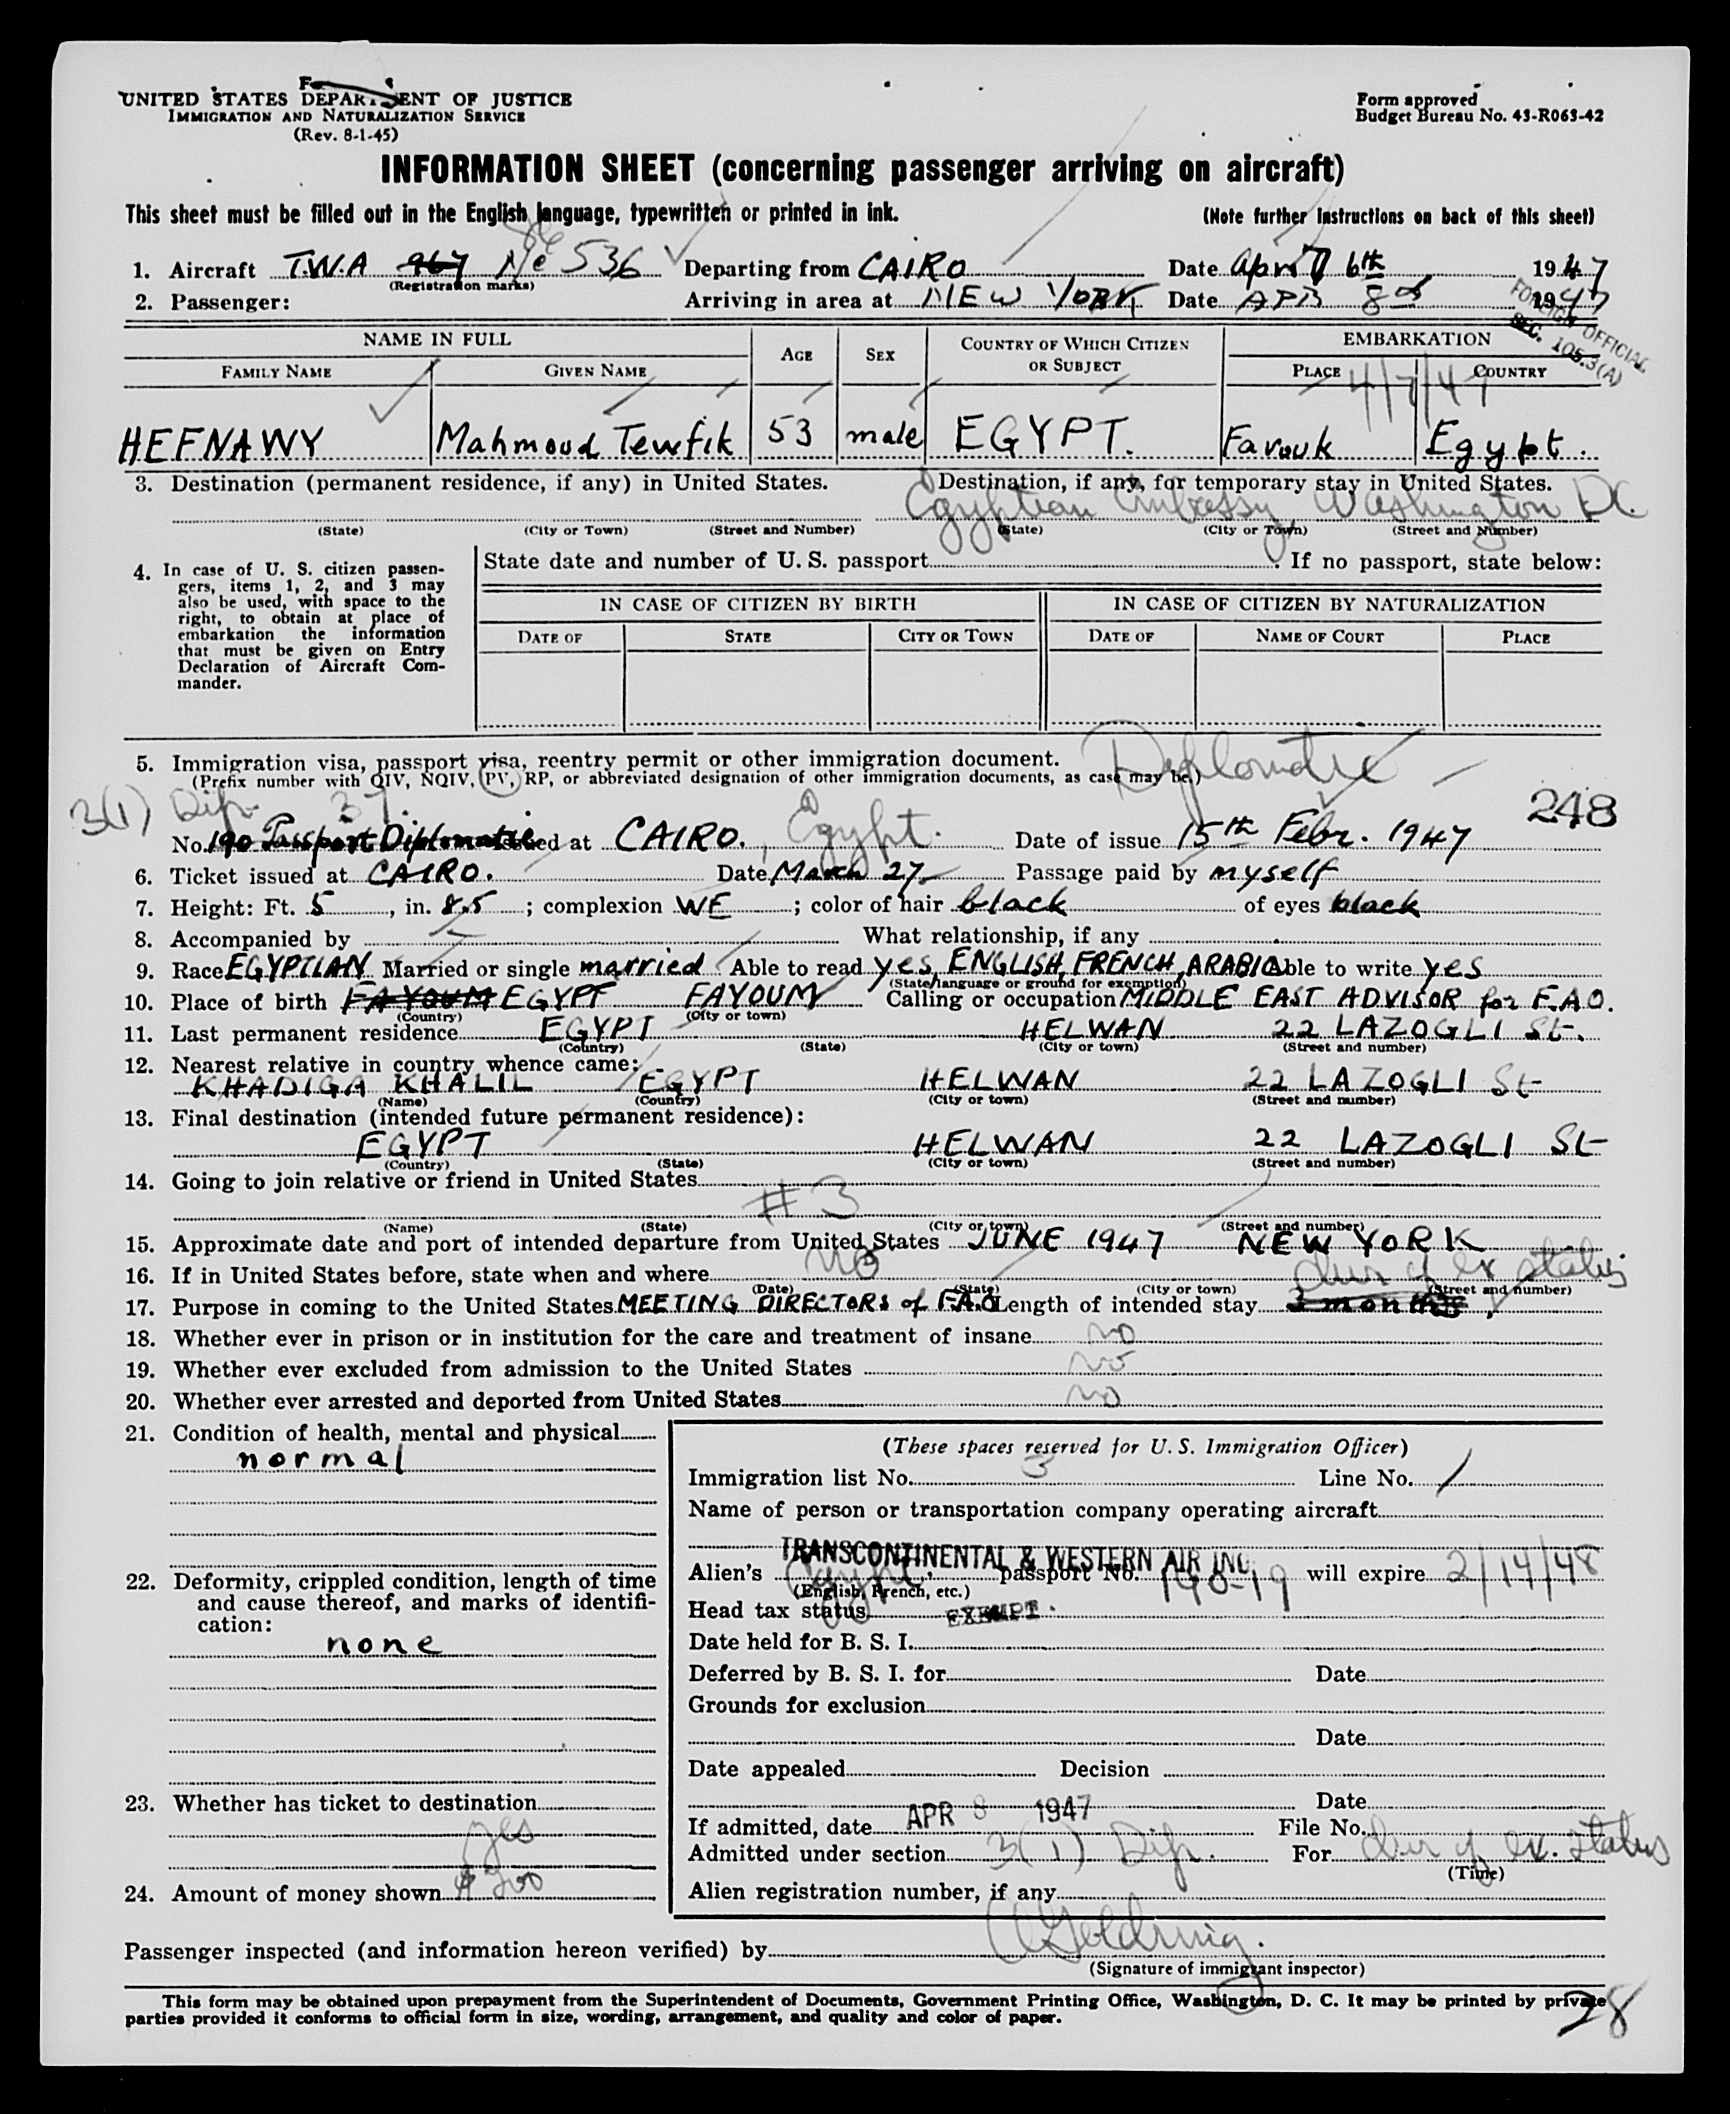 UNITED STATES DEPARTMENT OF JUSTICE
IMMIGRATION AND NATURALIZATION SERVICE
(Rev. 8-1-45)
Form approved
Budget Bureau No. 43-R063-42
INFORMATION SHEET (concerning passenger arriving on aircraft)
This sheet must be filled out in the English language, typewritten or printed in ink. (Note further instructions on back of this sheet)
1. Aircraft T.W.A 967 No 536 Departing from CAIRO Date April 6th 1947
(Registration marks)
2. Passenger: Arriving in area at NEW YORK Date APR 8th 1947
FOREIGN OFFICIAL
SEC. 105.3(A)
NAME IN FULL AGE SEX COUNTRY OF WHICH CITIZEN OR SUBJECT EMBARKATION
FAMILY NAME GIVEN NAME PLACE COUNTRY
4/7/47
HEFNAWY Mahmoud Tewfik 53 male EGYPT. Farouk Egypt.
3. Destination (permanent residence, if any) in United States. Destination, if any, for temporary stay in United States.
Egyptian Embassy Washington DC.
(State) (City or Town) (Street and Number) (State) (City or Town) (Street and Number)
4. In case of U. S. citizen passengers, items 1, 2, and 3 may also be used, with space to the right, to obtain at place of embarkation the information that must be given on Entry Declaration of Aircraft Commander.
State date and number of U. S. passport. If no passport, state below:
IN CASE OF CITIZEN BY BIRTH IN CASE OF CITIZEN BY NATURALIZATION
DATE OF STATE CITY OR TOWN DATE OF NAME OF COURT PLACE
5. Immigration visa, passport visa, reentry permit or other immigration document. Diplomatic
(Prefix number with QIV, NQIV, PV, RP, or abbreviated designation of other immigration documents, as case may be.)
3(1) Dip. 37. 248
No. 190 Passport Diplomatic issued at CAIRO, Egypt. Date of issue 15th Febr. 1947
6. Ticket issued at CAIRO. Date March 27 Passage paid by myself
7. Height: Ft. 5, in. 8.5; complexion WE; color of hair black of eyes black
8. Accompanied by What relationship, if any
9. Race EGYPTIAN Married or single married Able to read yes, ENGLISH, FRENCH, ARABIC Able to write yes
(State language or ground for exemption)
10. Place of birth FAYOUM EGYPT FAYOUM Calling or occupation MIDDLE EAST ADVISOR for F.A.O.
(Country) (City or town)
11. Last permanent residence EGYPT HELWAN 22 LAZOGLI St.
(Country) (State) (City or town) (Street and number)
12. Nearest relative in country whence came:
KHADIGA KHALIL EGYPT HELWAN 22 LAZOGLI St
(Name) (Country) (City or town) (Street and number)
13. Final destination (intended future permanent residence):
EGYPT HELWAN 22 LAZOGLI St
(Country) (State) (City or town) (Street and number)
14. Going to join relative or friend in United States
#3
(Name) (State) (City or town) (Street and number)
15. Approximate date and port of intended departure from United States JUNE 1947 NEW YORK
16. If in United States before, state when and where No
(Date) (State) (City or town) (Street and number)
dur of ex status
17. Purpose in coming to the United States MEETING DIRECTORS of F.A.O Length of intended stay 3 months
18. Whether ever in prison or in institution for the care and treatment of insane no
19. Whether ever excluded from admission to the United States no
20. Whether ever arrested and deported from United States no
21. Condition of health, mental and physical
normal
22. Deformity, crippled condition, length of time and cause thereof, and marks of identification:
none
23. Whether has ticket to destination
yes
24. Amount of money shown $200
(These spaces reserved for U. S. Immigration Officer)
Immigration list No. 3 Line No. 1
Name of person or transportation company operating aircraft
TRANSCONTINENTAL & WESTERN AIR INC.
Alien's Egypt. passport No. 190-19 will expire 2/14/48
(English, French, etc.)
Head tax status EXEMPT.
Date held for B. S. I.
Deferred by B. S. I. for Date
Grounds for exclusion
Date
Date appealed Decision
Date
If admitted, date APR 8 1947 File No.
Admitted under section 3(1) Dip. For dur of ex. status
(Time)
Alien registration number, if any
Passenger inspected (and information hereon verified) by Goldring.
(Signature of immigrant inspector)
This form may be obtained upon prepayment from the Superintendent of Documents, Government Printing Office, Washington, D. C. It may be printed by private
parties provided it conforms to official form in size, wording, arrangement, and quality and color of paper.
28